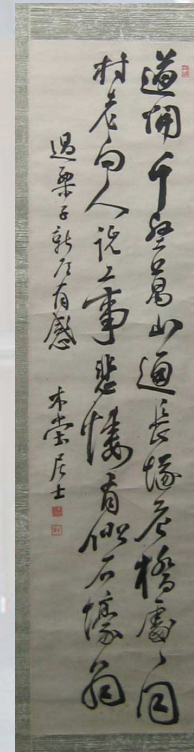 開千壑萬山通長危橋處々同
村老向人說工事悲悽有似石壕翁
過栗子新道有感
木堂居士